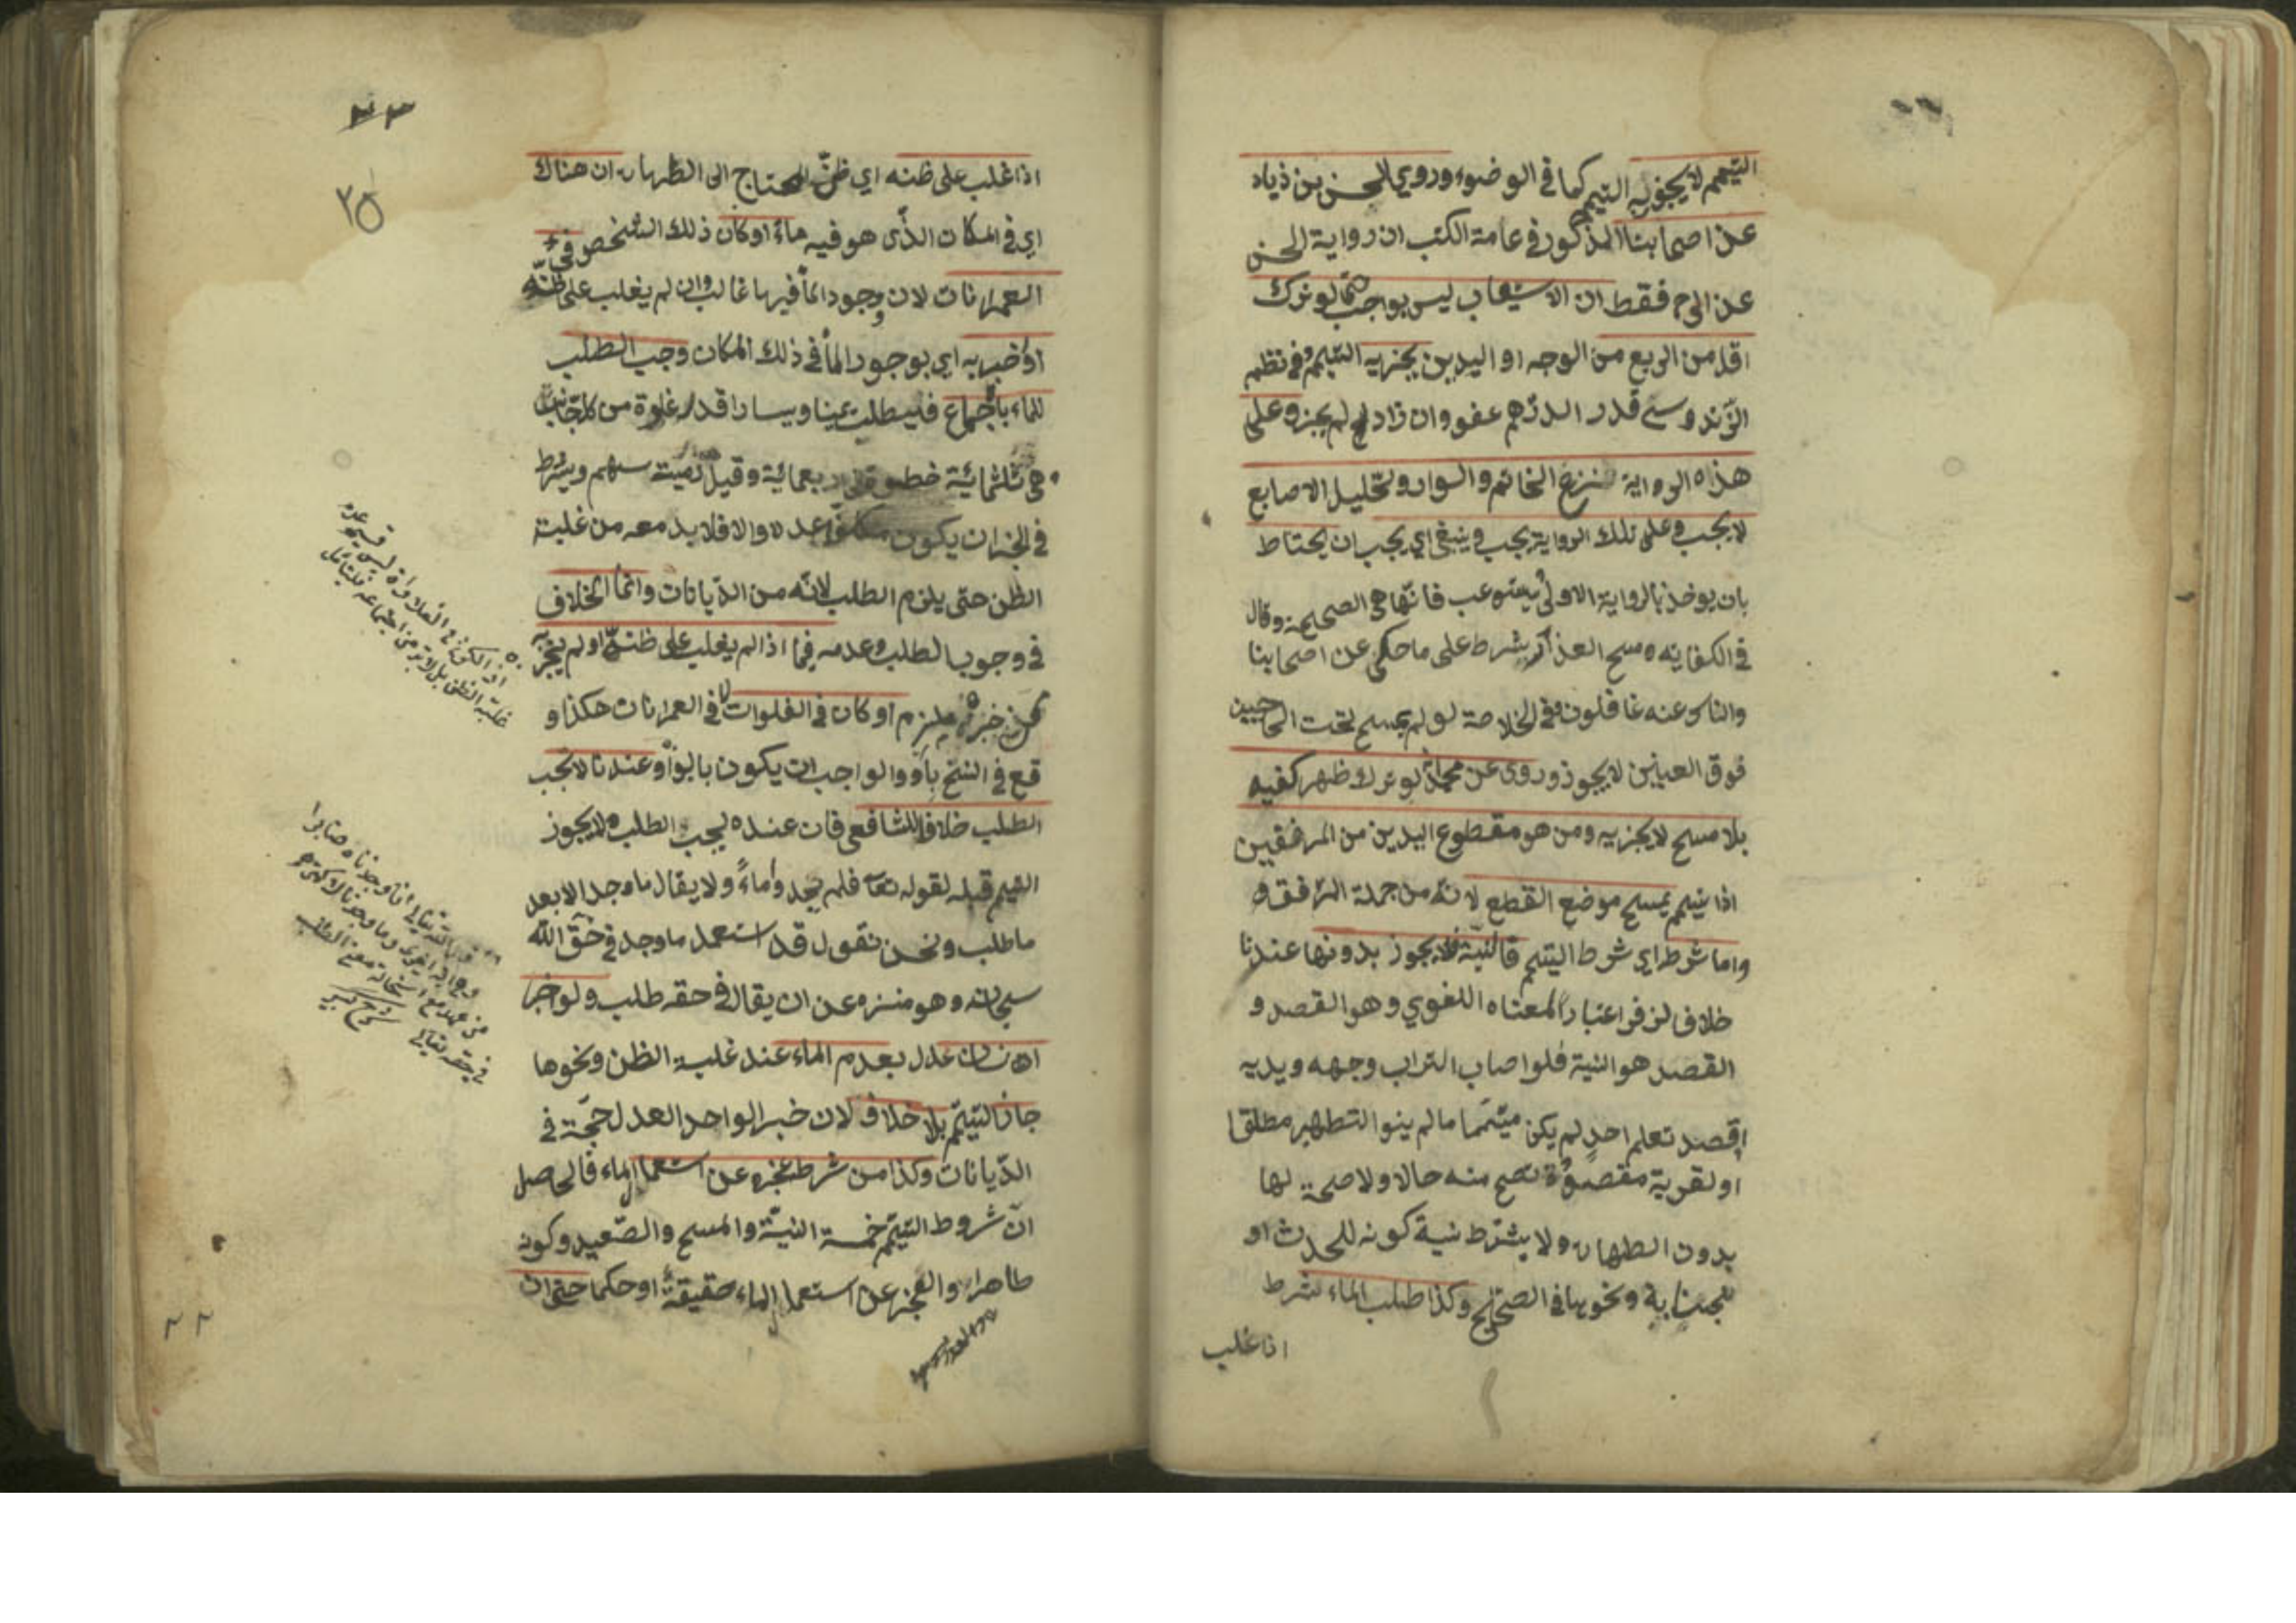 التيمم لا يجوز له التيمم كما في الوضوء وروي الحسن بن زياد
عن اصحابنا المذكور في عامة الكتب ان رواية الحسن
عن فقط ان الاستيعاب ليس بواجب حتى لو ترك
اقل من الربع من الوجه او اليدين يجزيه التيمم وفي نظم
الزندوسي قدر الدرهم عفو وان زاد لم يجز وعلى
هذه الرواية نزع الخاتم والسوار وتخليل الاصابع
لا يجب وعلى تلك الرواية يجب وينبغي اي يجب ان يحتاط
بان يوخذ بالرواية الاولى يستوعب فانها هي الصحيحة وقال
في الكفاية مسح العذار شرط على ما حكى عن اصحابنا
والناس عنه غافلون وفي الخلاصة لو لم يمسح تحت الحاجبين
فوق العينين لا يجوز وروى عن محمد لو ترك ظهر كفيه
بلا مسح لا يجزيه ومن هو مقطوع اليدين من المرفقين
اذا تيمم يمسح موضع القطع لانه من جملة المرفق
واما شرط اي شرط التيمم فالنية فلا يجوز بدونها عندنا
خلاف لزفر اعتبارا لمعناه اللغوي وهو القصد و
القصد هو النية فلو اصاب التراب وجهه ويديه
اقصد تعلم احد لم يكن متيمما ما لم ينو التطهير مطلقا
او لقربة مقصودة تصح منه حالا ولا صحة لها
بدون الطهارة ولا يشترط نية كونه للحدث او
للجنابة ونحوها في الصحيح وكذا طلب الماء شرط
اذا غلب
٢٥
اذا غلب على ظنه اي ظن المحتاج الى الطهارة ان هناك
اي في المكان الذي هو فيه ماء او كان ذلك الشخص في
العمرانات لان وجود الماء فيها غالب وان لم يغلب على ظنه
او اخبر به اي بوجود الماء في ذلك المكان وجب الطلب
للماء بالاجماع فليطلب يمينا ويسارا قدر غلوة من كل جانب
هي ثلثمائة خطوة الى اربعمائة وقيل رمية سهم ويشترط
في المخبر ان يكون مكلفا عدلا والا فلا بد معه من غلبة
الظن حتى يلزم الطلب لانه من الديانات وانما الخلاف
في وجوب الطلب وعدمه فيما اذا لم يغلب على ظنه او لم يخبر به
او كان في الفلوات لا في العمرانات هكذا و
قع في النسخ باو والواجب ان يكون بالواو وعندنا لا يجب
الطلب خلافا للشافعي فان عنده يجب الطلب ولا يجوز
التيمم قبله لقوله تعا فلم يجدوا ماء ولا يقال ما وجد الا بعد
ما طلب ونحن نقول قد استعمل ما وجد في حق الله
سبحانه وهو منزه عن ان يقال في حقه طلب ولو اخبر
انسان عدل بعدم الماء عند غلبة الظن ونحوها
جاز التيمم بلا خلاف لان خبر الواحد العدل حجة في
الديانات وكذا من شرط عجزه عن استعمال الماء فالحاصل
ان شروط التيمم خمسة النية والمسح والصعيد وكونه
طاهرا والعجز عن استعمال الماء حقيقة او حكما حتى ان
غلبة الظن بل لا بد من
قال الله تعالى انا وجدناه صابرا
في حقه تعالى